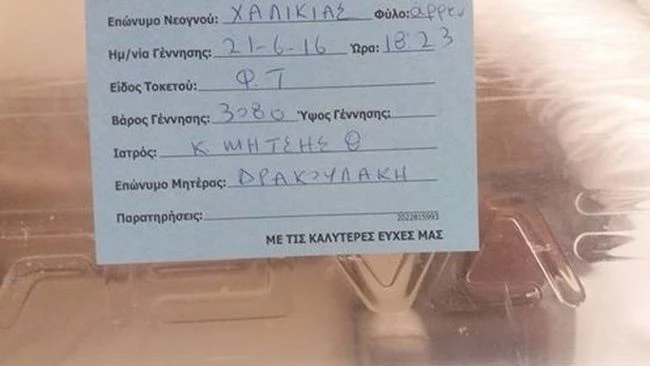 Επώνυμο Νεογνού: ΧΑΛΙΚΙΑΣ Φύλο: αρρεν
Ημ/νία Γέννησης: 21-6-16 Ώρα: 18:23
Είδος Τοκετού: Φ.Τ
Βάρος Γέννησης: 3080 Ύψος Γέννησης:
Ιατρός: Κ ΜΗΤΣΗΣ Θ
Επώνυμο Μητέρας: ΔΡΑΚΟΥΛΑΚΗ
Παρατηρήσεις: 2022815993
ΜΕ ΤΙΣ ΚΑΛΥΤΕΡΕΣ ΕΥΧΕΣ ΜΑΣ